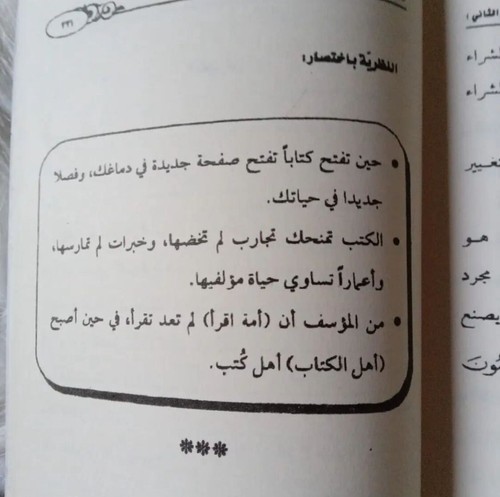 ٢٢١
النظريّة باختصار:
• حين تفتح كتاباً تفتح صفحة جديدة في دماغك، وفصلا
جديدا في حياتك.
• الكتب تمنحك تجارب لم تخضها، وخبرات لم تمارسها،
وأعماراً تساوي حياة مؤلفيها.
• من المؤسف أن (أمة اقرأ) لم تعد تقرأ، في حين أصبح
(أهل الكتاب) أهل كُتب.
***
الثاني
لشراء
لشراء
تغيير
هو
مجرد
يصنع